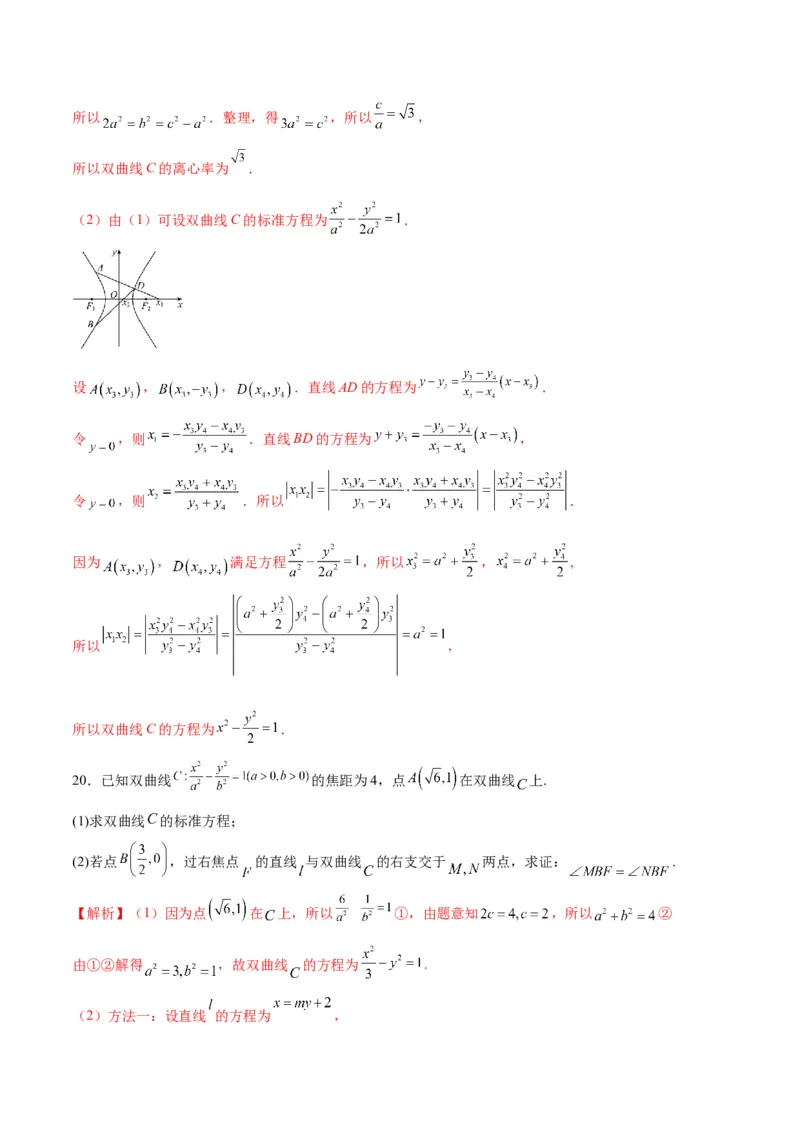 所以 2a² = b² = c² − a². 整理，得 3a² = c²，所以 c/a = √3，
所以双曲线C的离心率为 √3．
（2）由（1）可设双曲线C的标准方程为 x²/a² − y²/2a² = 1．
y
A
D
O
F₁ x₂ F₂ x₁ x
B
设 A(x₃,y₃)，B(x₃,−y₃)，D(x₄,y₄)．直线AD的方程为 y−y₃ = (y₃−y₄)/(x₃−x₄) (x−x₃)．
令 y=0，则 x₁ = −(x₃y₄−x₄y₃)/(y₃−y₄)．直线BD的方程为 y+y₃ = (−y₃−y₄)/(x₃−x₄) (x−x₃)，
令 y=0，则 x₂ = (x₃y₄+x₄y₃)/(y₃+y₄)．所以 |x₁x₂| = |−(x₃y₄−x₄y₃)/(y₃−y₄) · (x₃y₄+x₄y₃)/(y₃+y₄)| = |(x₃²y₄²−x₄²y₃²)/(y₃²−y₄²)|．
因为 A(x₃,y₃)，D(x₄,y₄) 满足方程 x²/a² − y²/2a² = 1，所以 x₃² = a² + y₃²/2，x₄² = a² + y₄²/2，
所以 |x₁x₂| = |(x₃²y₄²−x₄²y₃²)/(y₃²−y₄²)| = |((a²+y₃²/2)y₄²−(a²+y₄²/2)y₃²)/(y₃²−y₄²)| = a² = 1，
所以双曲线C的方程为 x² − y²/2 = 1．
20．已知双曲线 C: x²/a² − y²/b² = 1(a>0,b>0) 的焦距为4，点 A(√6,1) 在双曲线 C 上.
(1)求双曲线 C 的标准方程；
(2)若点 B(3/2,0)，过右焦点 F 的直线 l 与双曲线 C 的右支交于 M,N 两点，求证：∠MBF=∠NBF．
【解析】（1）因为点 (√6,1) 在 C 上，所以 6/a² 1/b² =1 ①，由题意知 2c=4,c=2，所以 a²+b²=4 ②
由①②解得 a²=3,b²=1，故双曲线 C 的方程为 x²/3 − y² = 1.
（2）方法一：设直线 l 的方程为 x=my+2，